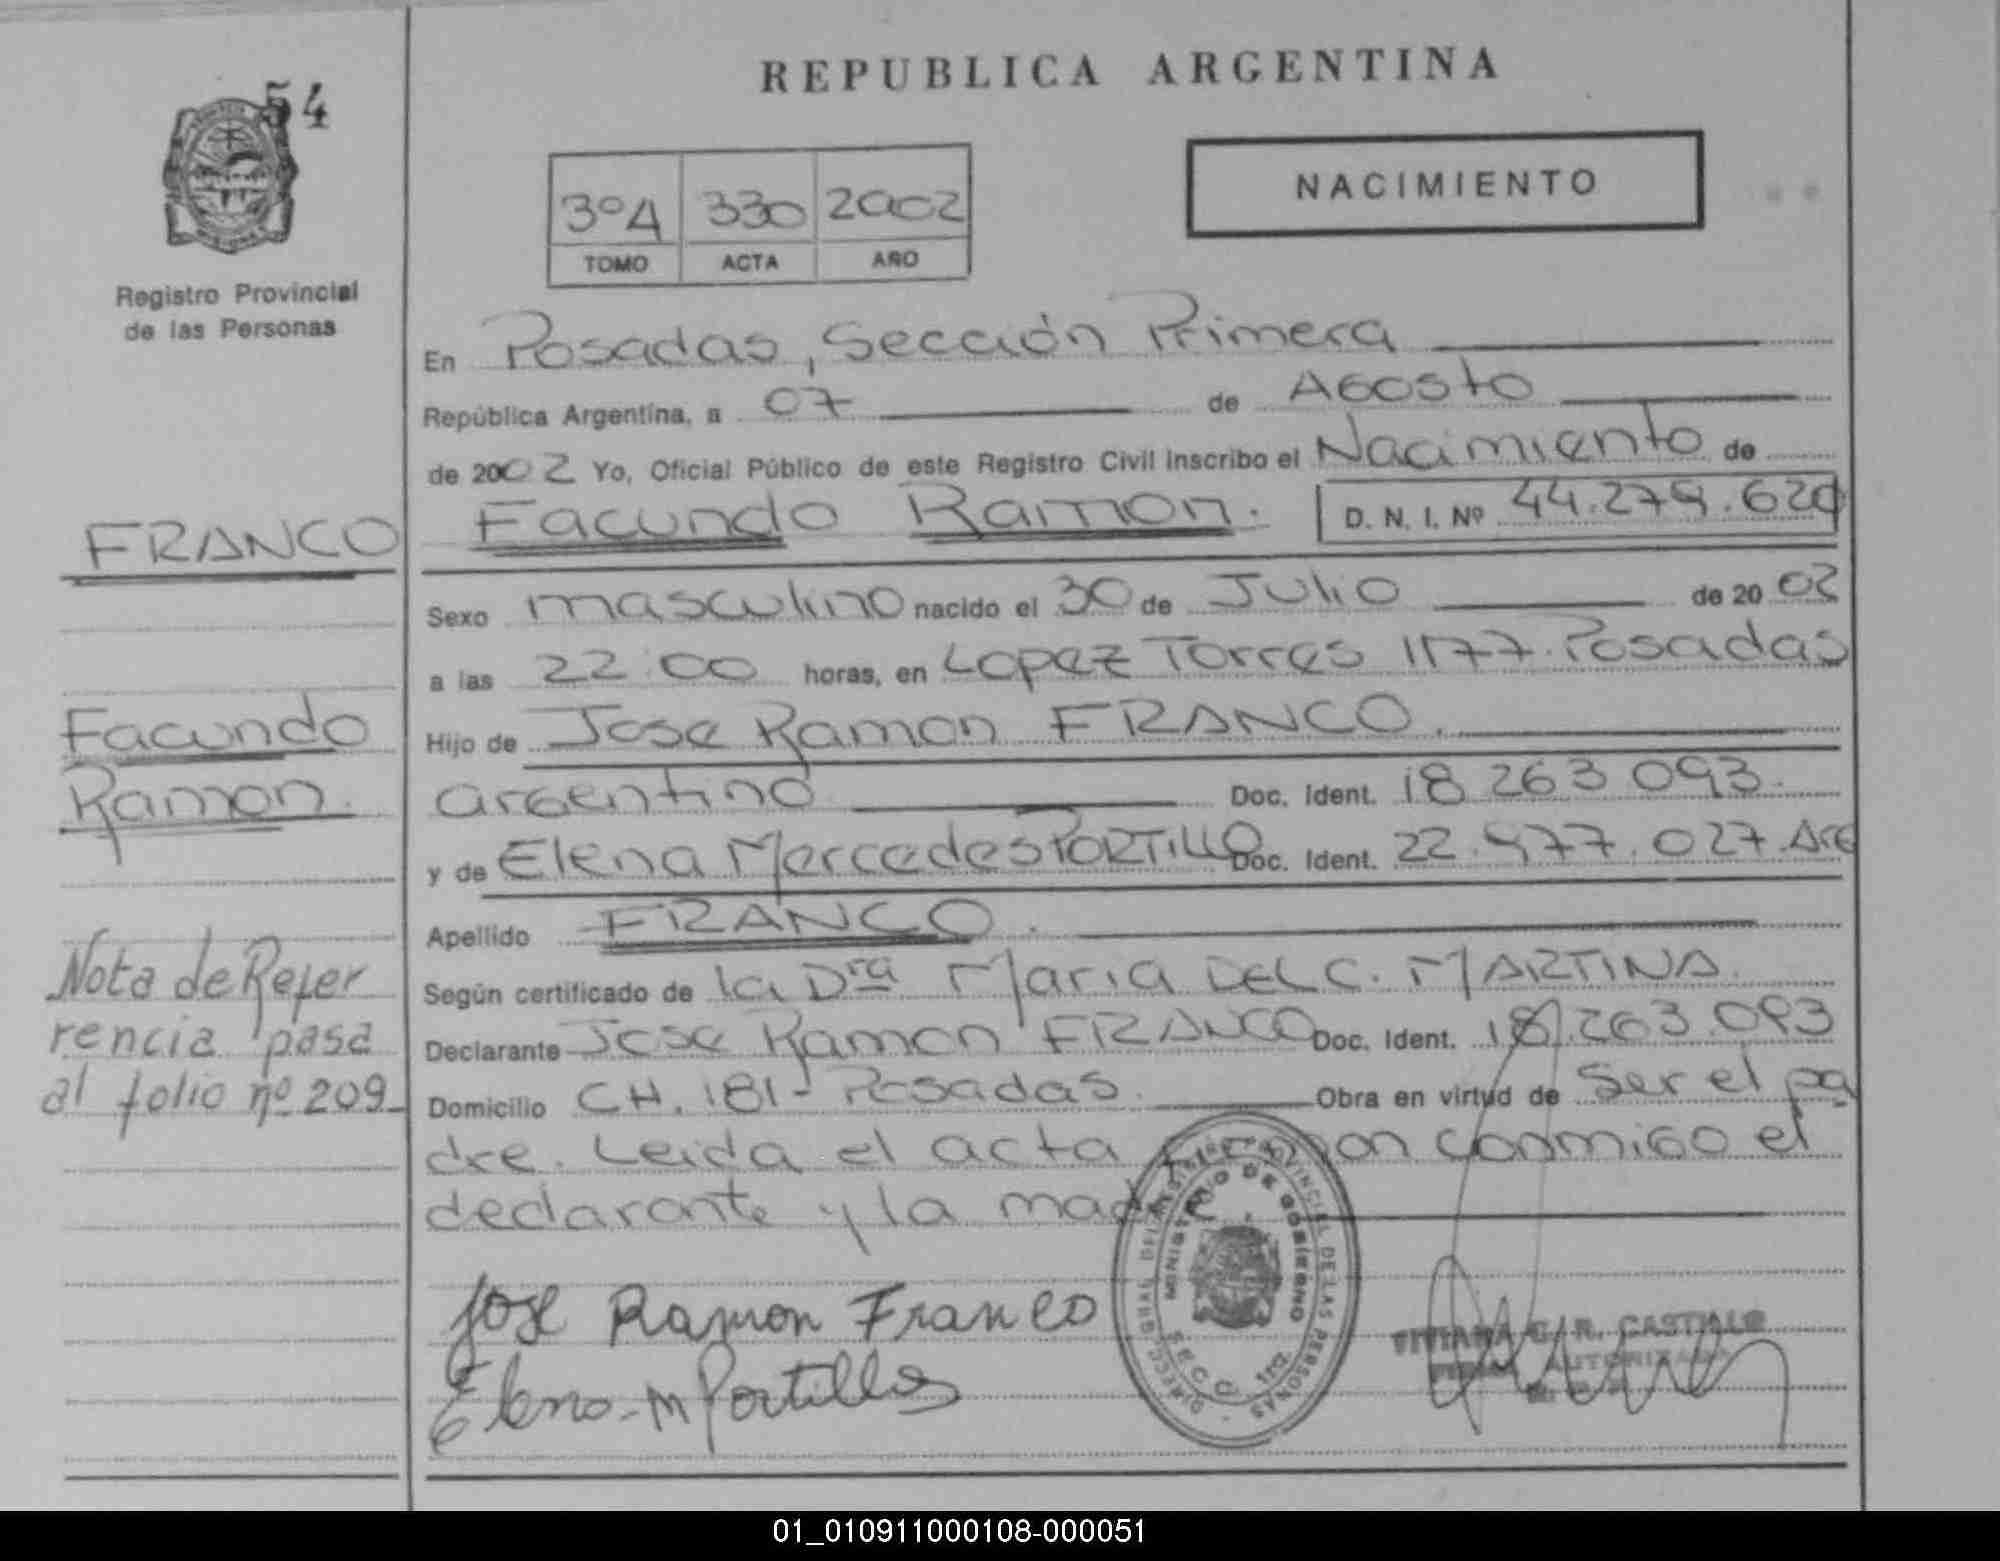 54
Registro Provincial
de las Personas
REPUBLICA ARGENTINA
NACIMIENTO
3ºA 330 2002
TOMO ACTA AÑO
En Posadas, Sección Primera
República Argentina, a 07 de Agosto
de 2002 Yo, Oficial Público de este Registro Civil inscribo el Nacimiento de
FRANCO
Facundo Ramon. D. N. I. Nº 44.279.620
Sexo masculino nacido el 30 de Julio de 2002
a las 22:00 horas, en Lopez Torres 1177. Posadas
Facundo
Ramon.
Hijo de Jose Ramon FRANCO.
argentino Doc. Ident. 18 263 093.
y de Elena Mercedes PORTILLO Doc. Ident. 22.977.027. Arg
Apellido FRANCO.
Nota de Refer
rencia pasa
al folio nº 209
Según certificado de la Dra Maria DEL C. MARTINA.
Declarante Jose Ramon FRANCO Doc. Ident. 18.263.093
Domicilio CH. 181 - Posadas. Obra en virtud de Ser el pa
dre. Leida el acta firman conmigo el
declarante y la madre
Jose Ramon Franco
Elena M Portillo
MINISTERIO DE GOBIERNO
SECC. 1ra.
VIVIANA C. R. CASTILLO
AUTORIZADA
01_010911000108-000051